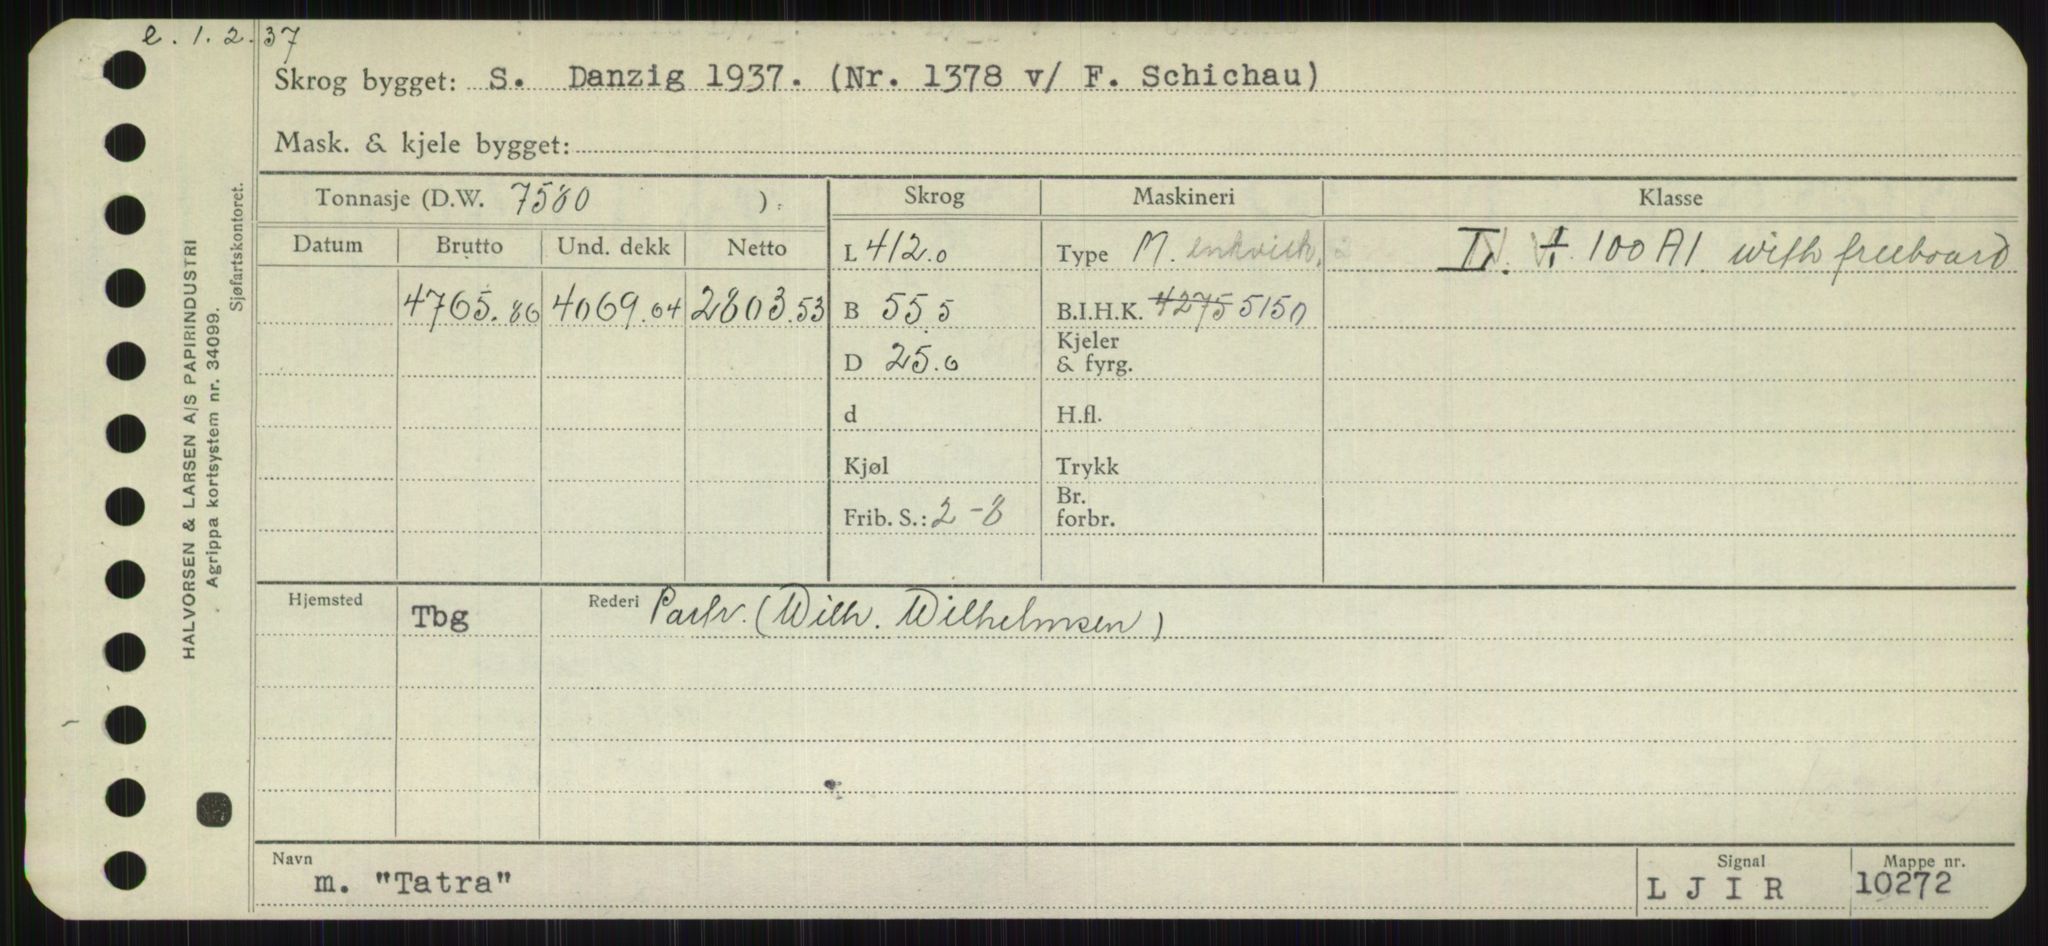 e. 1. 2. 37
Skrog bygget: S. Danzig 1937. (Nr. 1378 v/ F. Schichau)
Mask. & kjele bygget:
Tonnasje (D.W. 7580 ):
Skrog
Maskineri
Klasse
Datum Brutto Und. dekk Netto
L 412.0
Type M. enkvirk. 2
100 A1. with freeboard
4765.86 4069.04 2803.53
B 55.5
B.I.H.K. 4275 5150
D 25.0
Kjeler
& fyrg.
d
H.fl.
Kjøl
Trykk
Frib. S.: 2-8
Br.
forbr.
Hjemsted Tbg
Rederi Partr. (Wilh. Wilhelmsen)
Navn
m. "Tatra"
Signal
L J I R
Mappe nr.
10272
HALVORSEN & LARSEN A/S PAPIRINDUSTRI
Agrippa kortsystem nr. 34099.
Sjøfartskontoret.